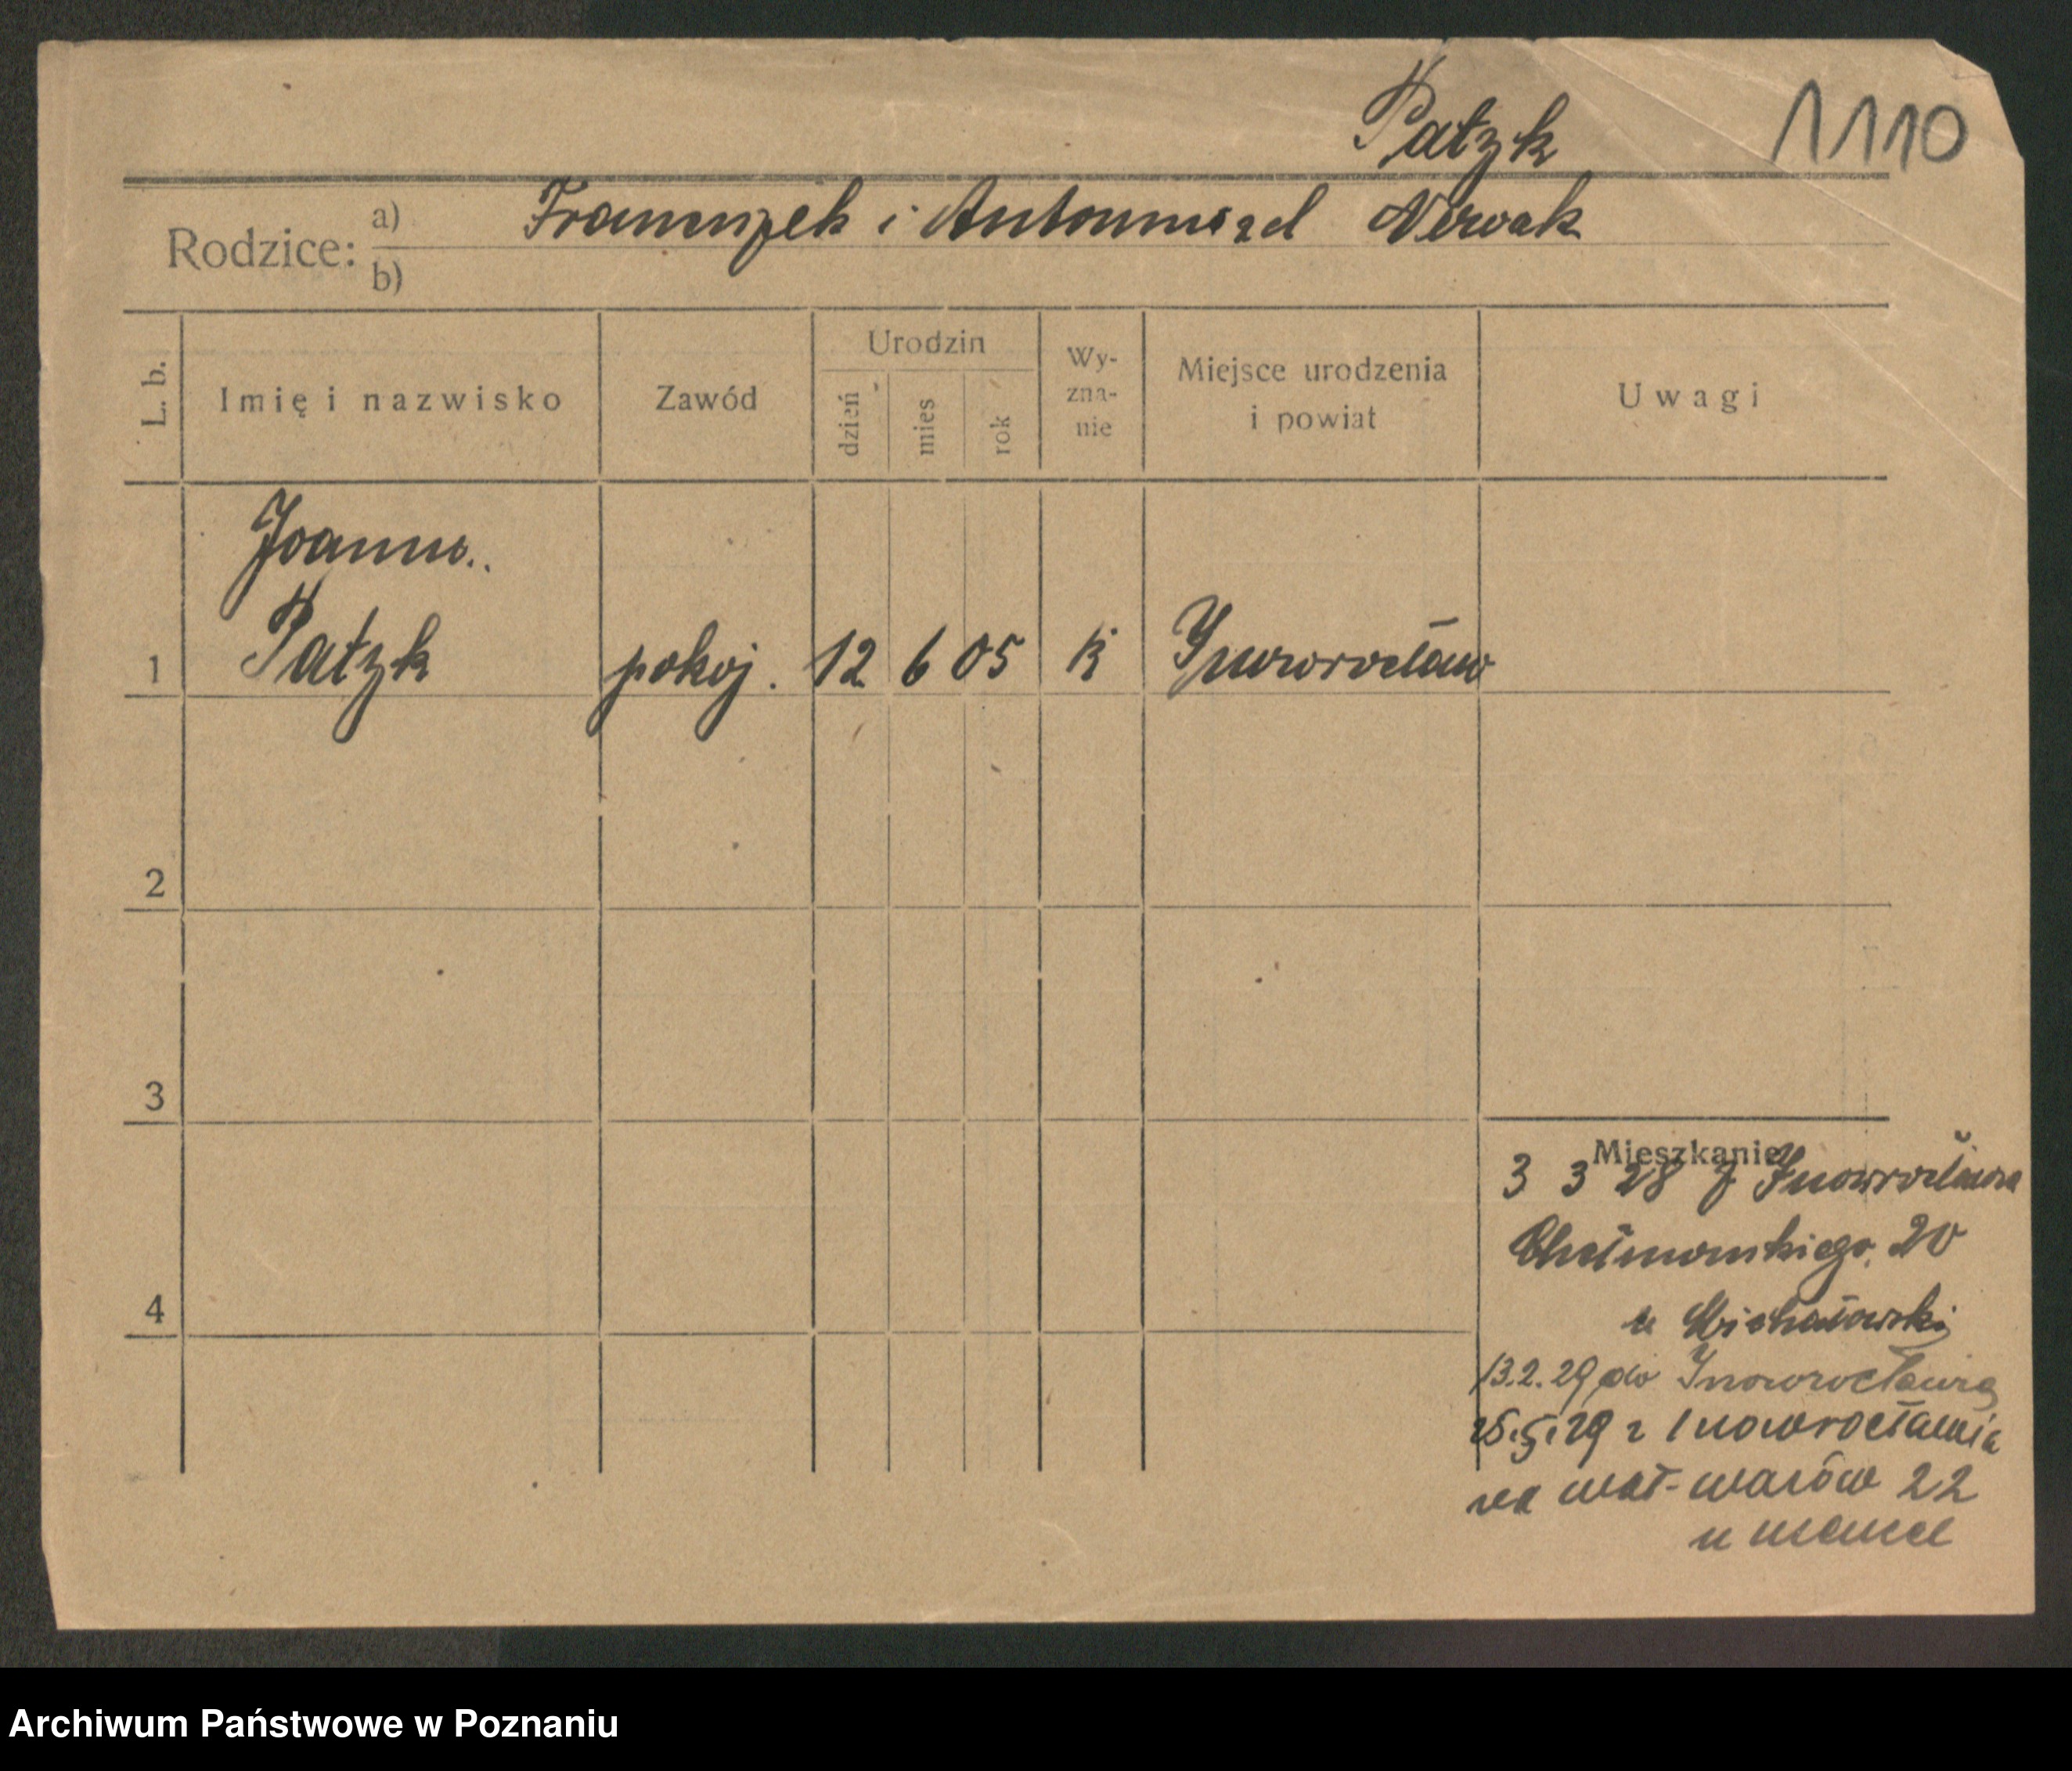 Patzk 1110
Rodzice: a) Franciszek i Antonina zd Nowak
b)
L. b. Imię i nazwisko Zawód Urodzin dzień mies rok Wy-zna-nie Miejsce urodzenia i powiat Uwagi
Joanna
1 Patzk pokoj. 12 6 05 K Inowrocław
2
3
Mieszkanie
3 3 28 z Inowrocławia
Chełmońskiego 20
4
u Michałowski
13.2.29 do Inowrocławia
25.5.29 z Inowrocławia
na wał-wazów 22
u
Archiwum Państwowe w Poznaniu